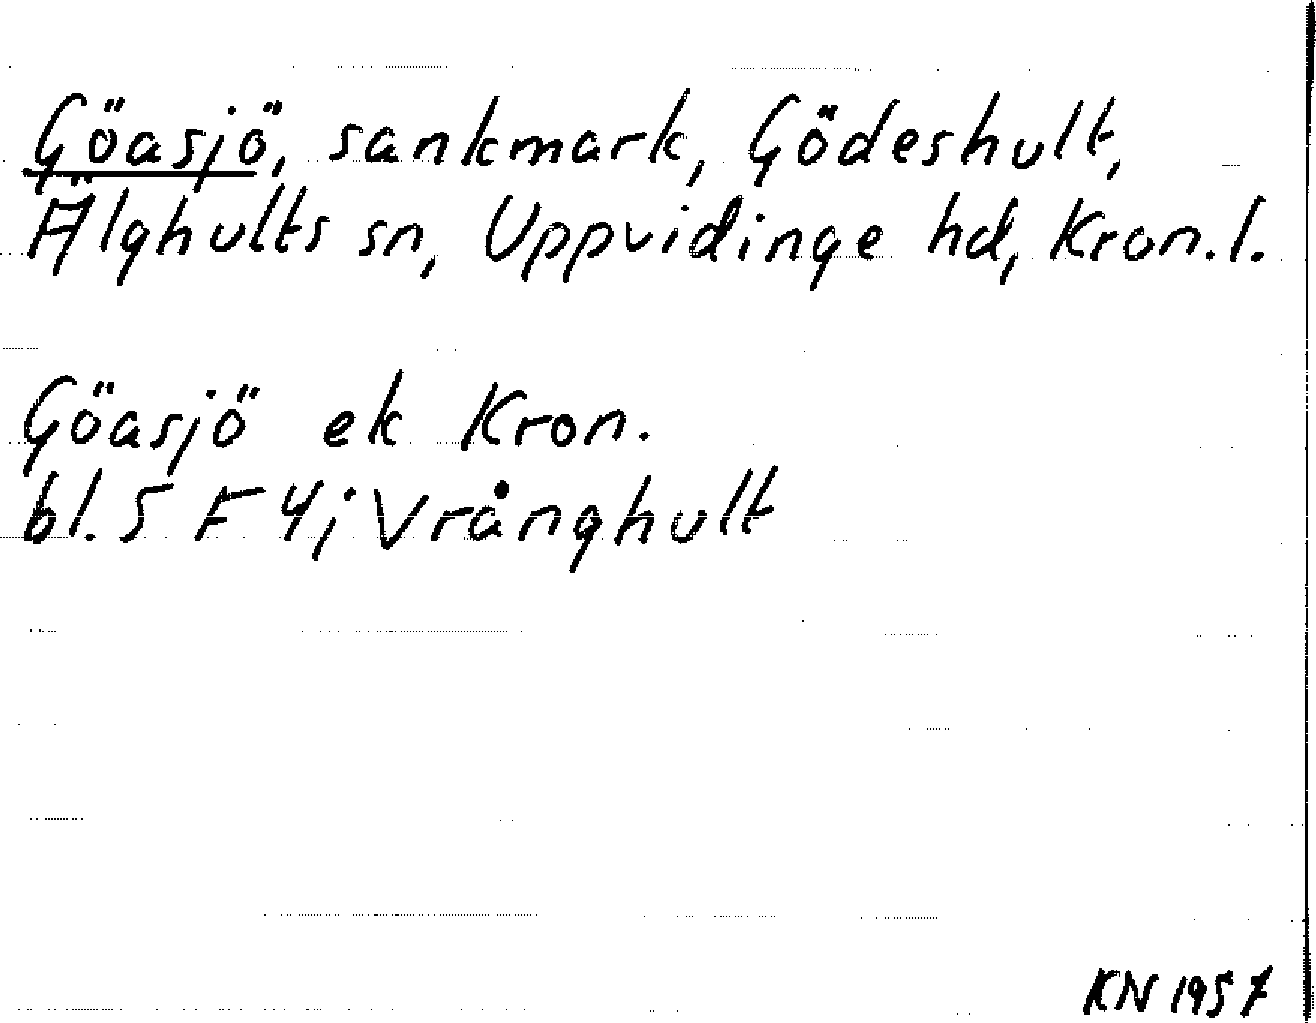 Göasjö, sankmark, Gödeshult,
Älghults sn, Uppvidinge hd, Kron.l.
Göasjö ek Kron.
bl. 5 F 4; Vrånghult
KN 1957